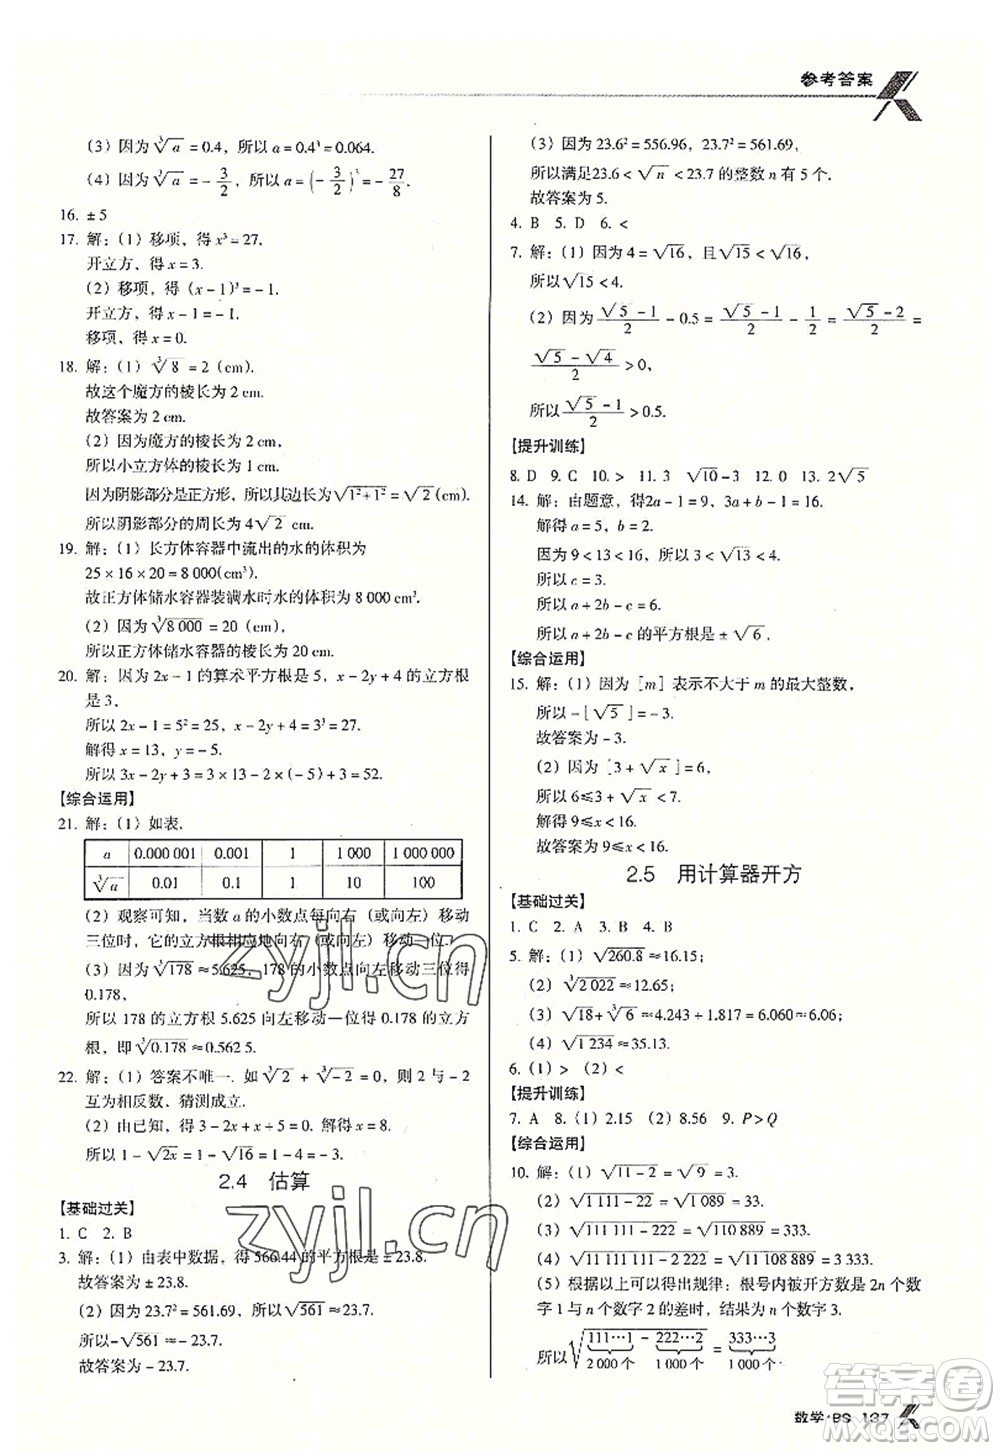 参考答案
(3) 因为∛a = 0.4, 所以 a = 0.4³ = 0.064.
(4) 因为∛a = -3/2, 所以 a = (-3/2)³ = -27/8.
16. ±5
17. 解: (1) 移项, 得 x³ = 27.
开立方, 得 x = 3.
(2) 移项, 得 (x - 1)³ = -1.
开立方, 得 x - 1 = -1.
移项, 得 x = 0.
18. 解: (1) ∛8 = 2 (cm).
故这个魔方的棱长为 2 cm.
故答案为 2 cm.
(2) 因为魔方的棱长为 2 cm.
所以小立方体的棱长为 1 cm.
因为阴影部分是正方形, 所以其边长为√(1² + 1²) = √2 (cm).
所以阴影部分的周长为 4√2 cm.
19. 解: (1) 长方体容器中流出的水的体积为
25 × 16 × 20 = 8 000(cm³).
故正方体储水容器装满水时水的体积为 8 000 cm³.
(2) 因为∛8 000 = 20 (cm).
所以正方体储水容器的棱长为 20 cm.
20. 解: 因为 2x - 1 的算术平方根是 5, x - 2y + 4 的立方根
是 3,
所以 2x - 1 = 5² = 25, x - 2y + 4 = 3³ = 27.
解得 x = 13, y = -5.
所以 3x - 2y + 3 = 3 × 13 - 2 × (-5) + 3 = 52.
【综合运用】
21. 解: (1) 如表.
a 0.000 001 0.001 1 1 000 1 000 000
∛a 0.01 0.1 1 10 100
(2) 观察可知, 当数 a 的小数点每向右 (或向左) 移动
三位时, 它的立方根相应地向右 (或向左) 移动一位.
(3) 因为∛178 ≈ 5.625, 178 的小数点向左移动三位得
0.178,
所以 178 的立方根 5.625 向左移动一位得 0.178 的立方
根, 即∛0.178 ≈ 0.562 5.
22. 解: (1) 答案不唯一. 如∛2 + ∛-2 = 0, 则 2 与 -2
互为相反数. 猜测成立.
(2) 由已知, 得 3 - 2x + x + 5 = 0. 解得 x = 8.
所以 1 - √2x = 1 - √16 = 1 - 4 = -3.
2.4 估算
【基础过关】
1. C 2. B
3. 解: (1) 由表中数据, 得 566.44 的平方根是 ±23.8.
故答案为 ±23.8.
(2) 因为 23.7² = 561.69, 所以√561 ≈ 23.7.
所以-√561 ≈ -23.7.
故答案为 -23.7.
(3) 因为 23.6² = 556.96, 23.7² = 561.69,
所以满足23.6 < √n < 23.7 的整数 n 有 5 个.
故答案为 5.
4. B 5. D 6. <
7. 解: (1) 因为 4 = √16, 且√15 < √16,
所以√15 < 4.
(2) 因为 (√5 - 1)/2 - 0.5 = (√5 - 1)/2 - 1/2 = (√5 - 2)/2 =
(√5 - √4)/2 > 0,
所以 (√5 - 1)/2 > 0.5.
【提升训练】
8. D 9. C 10. > 11. 3 √10 - 3 12. 0 13. 2√2
14. 解: 由题意, 得2a - 1 = 9, 3a + b - 1 = 16.
解得 a = 5, b = 2.
因为 9 < 13 < 16, 所以 3 < √13 < 4.
所以 c = 3.
所以 a + 2b - c = 6.
所以 a + 2b - c 的平方根是 ±√6.
【综合运用】
15. 解: (1) 因为 [m] 表示不大于 m 的最大整数,
所以 -[√5] = -3.
故答案为 -3.
(2) 因为 [3 + √x] = 6,
所以 6 ≤ 3 + √x < 7.
解得 9 ≤ x < 16.
故答案为 9 ≤ x < 16.
2.5 用计算器开方
【基础过关】
1. C 2. A 3. B 4. B
5. 解: (1) √260.8 ≈ 16.15;
(2) ∛2 022 ≈ 12.65;
(3) √18 + ∛6 ≈ 4.243 + 1.817 = 6.060 ≈ 6.06;
(4) √1 234 ≈ 35.13.
6. (1) > (2) <
【提升训练】
7. A 8. (1) 2.15 (2) 8.56 9. P > Q
【综合运用】
10. 解: (1) √(11 - 2) = √9 = 3.
(2) √(1 111 - 22) = √1 089 = 33.
(3) √(111 111 - 222) = √110 889 = 333.
(4) √(11 111 111 - 2 222) = √11 108 889 = 3 333.
(5) 根据以上可以得出规律: 根号内被开方数是 2n 个数
字 1 与 n 个数字 2 的差时, 结果为 n 个数字 3.
所以 √(111…1 - 222…2) = 333…3
2 000 个 1 000 个 1 000 个
zyjl.cn
zyjl.cn
答案圈
MXQE.COM
数学·BS 137